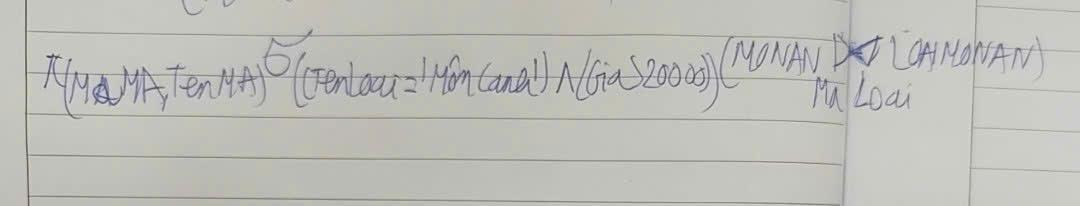 π(MaMA,TenMA) σ((Tenloai='Món Canh') ∧ (Gia>20000)) (MONAN ⋈ LOAIMONAN)
Ma Loai